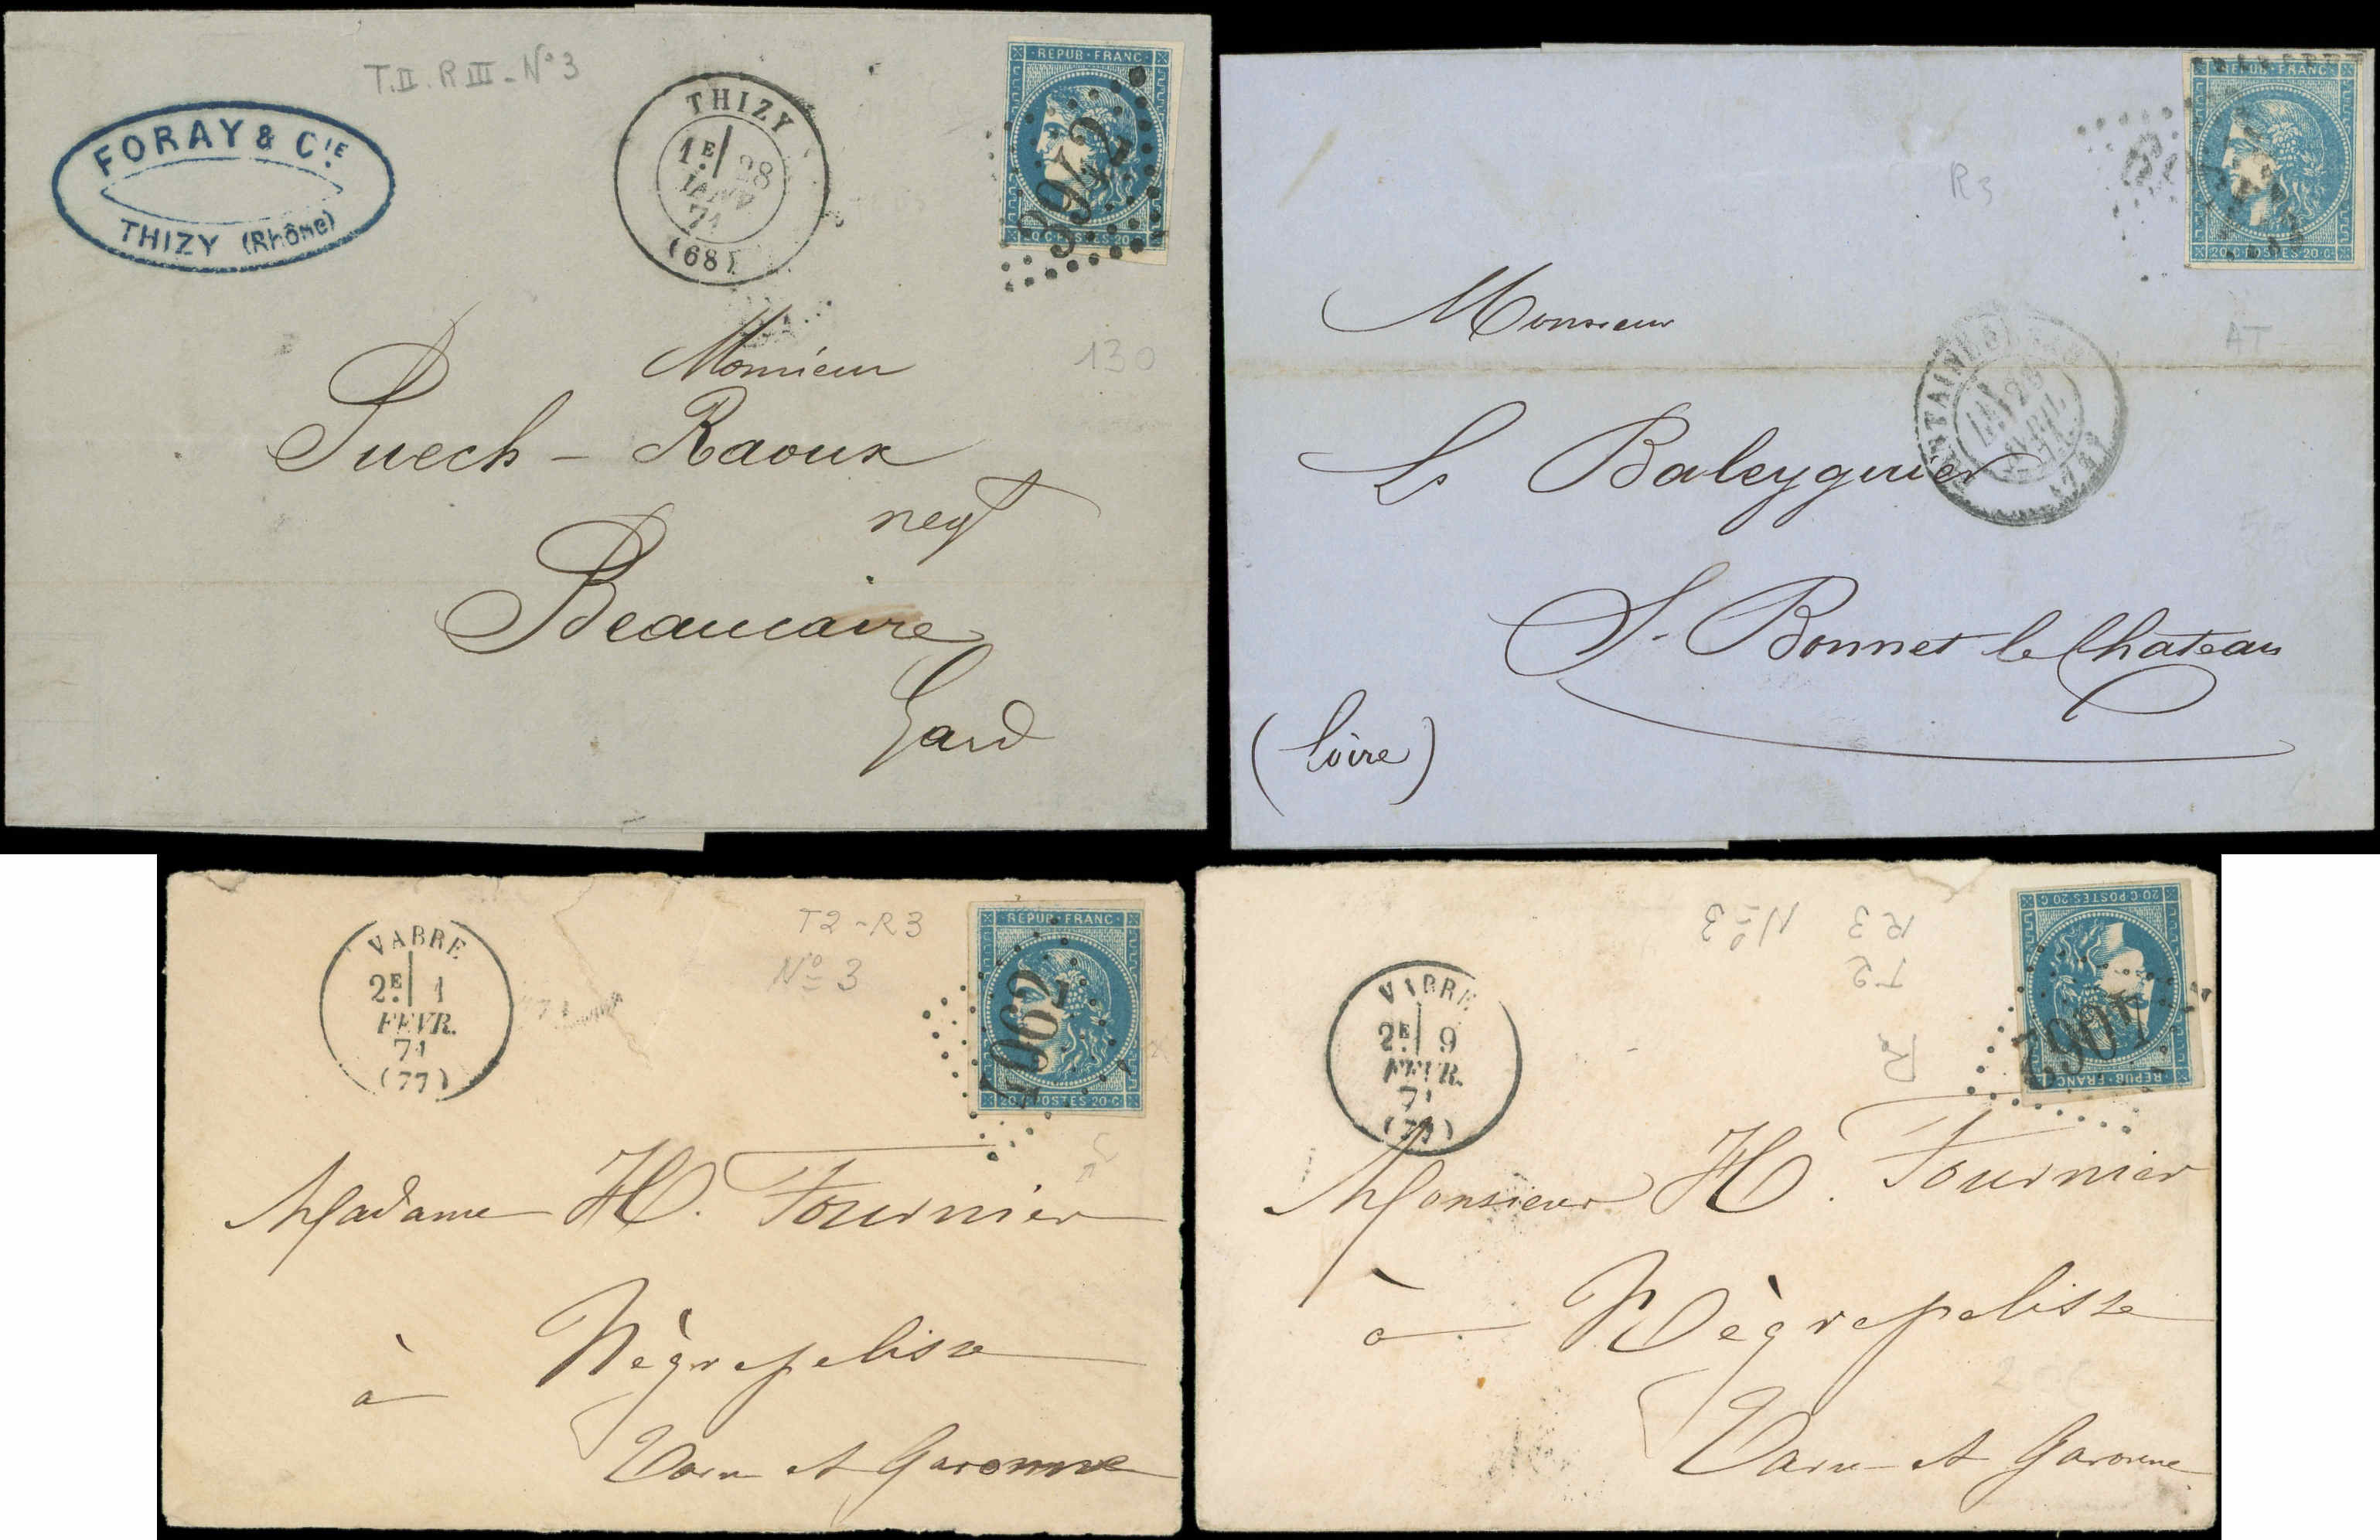 T.II. R III - N° 3
FORAY & CIE
THIZY (Rhône)
THIZY
1E 28
JANV
71
(68)
REPUB · FRANC
3942
20 C POSTES 20 C
130
Monsieur
Puech - Raoux
negt
Beaucaire
Gard
REPUB · FRANC
20 C POSTES 20 C
R3
AT
28
AVRIL
71
Monsieur
Ls Baleyguier
St Bonnet le Chateau
(Loire)
VABRE
2E 1
FEVR.
71
(77)
T2 - R3
N° 3
REPUB · FRANC
4062
20 C POSTES 20 C
Madame H. Fournier
à Nègrepelisse
Tarn et Garonne
VABRE
2E 9
FEVR.
71
(77)
N° 3
R3
T2
R
20 C POSTES 20 C
4062
REPUB · FRANC
Monsieur H. Fournier
à Nègrepelisse
Tarn et Garonne